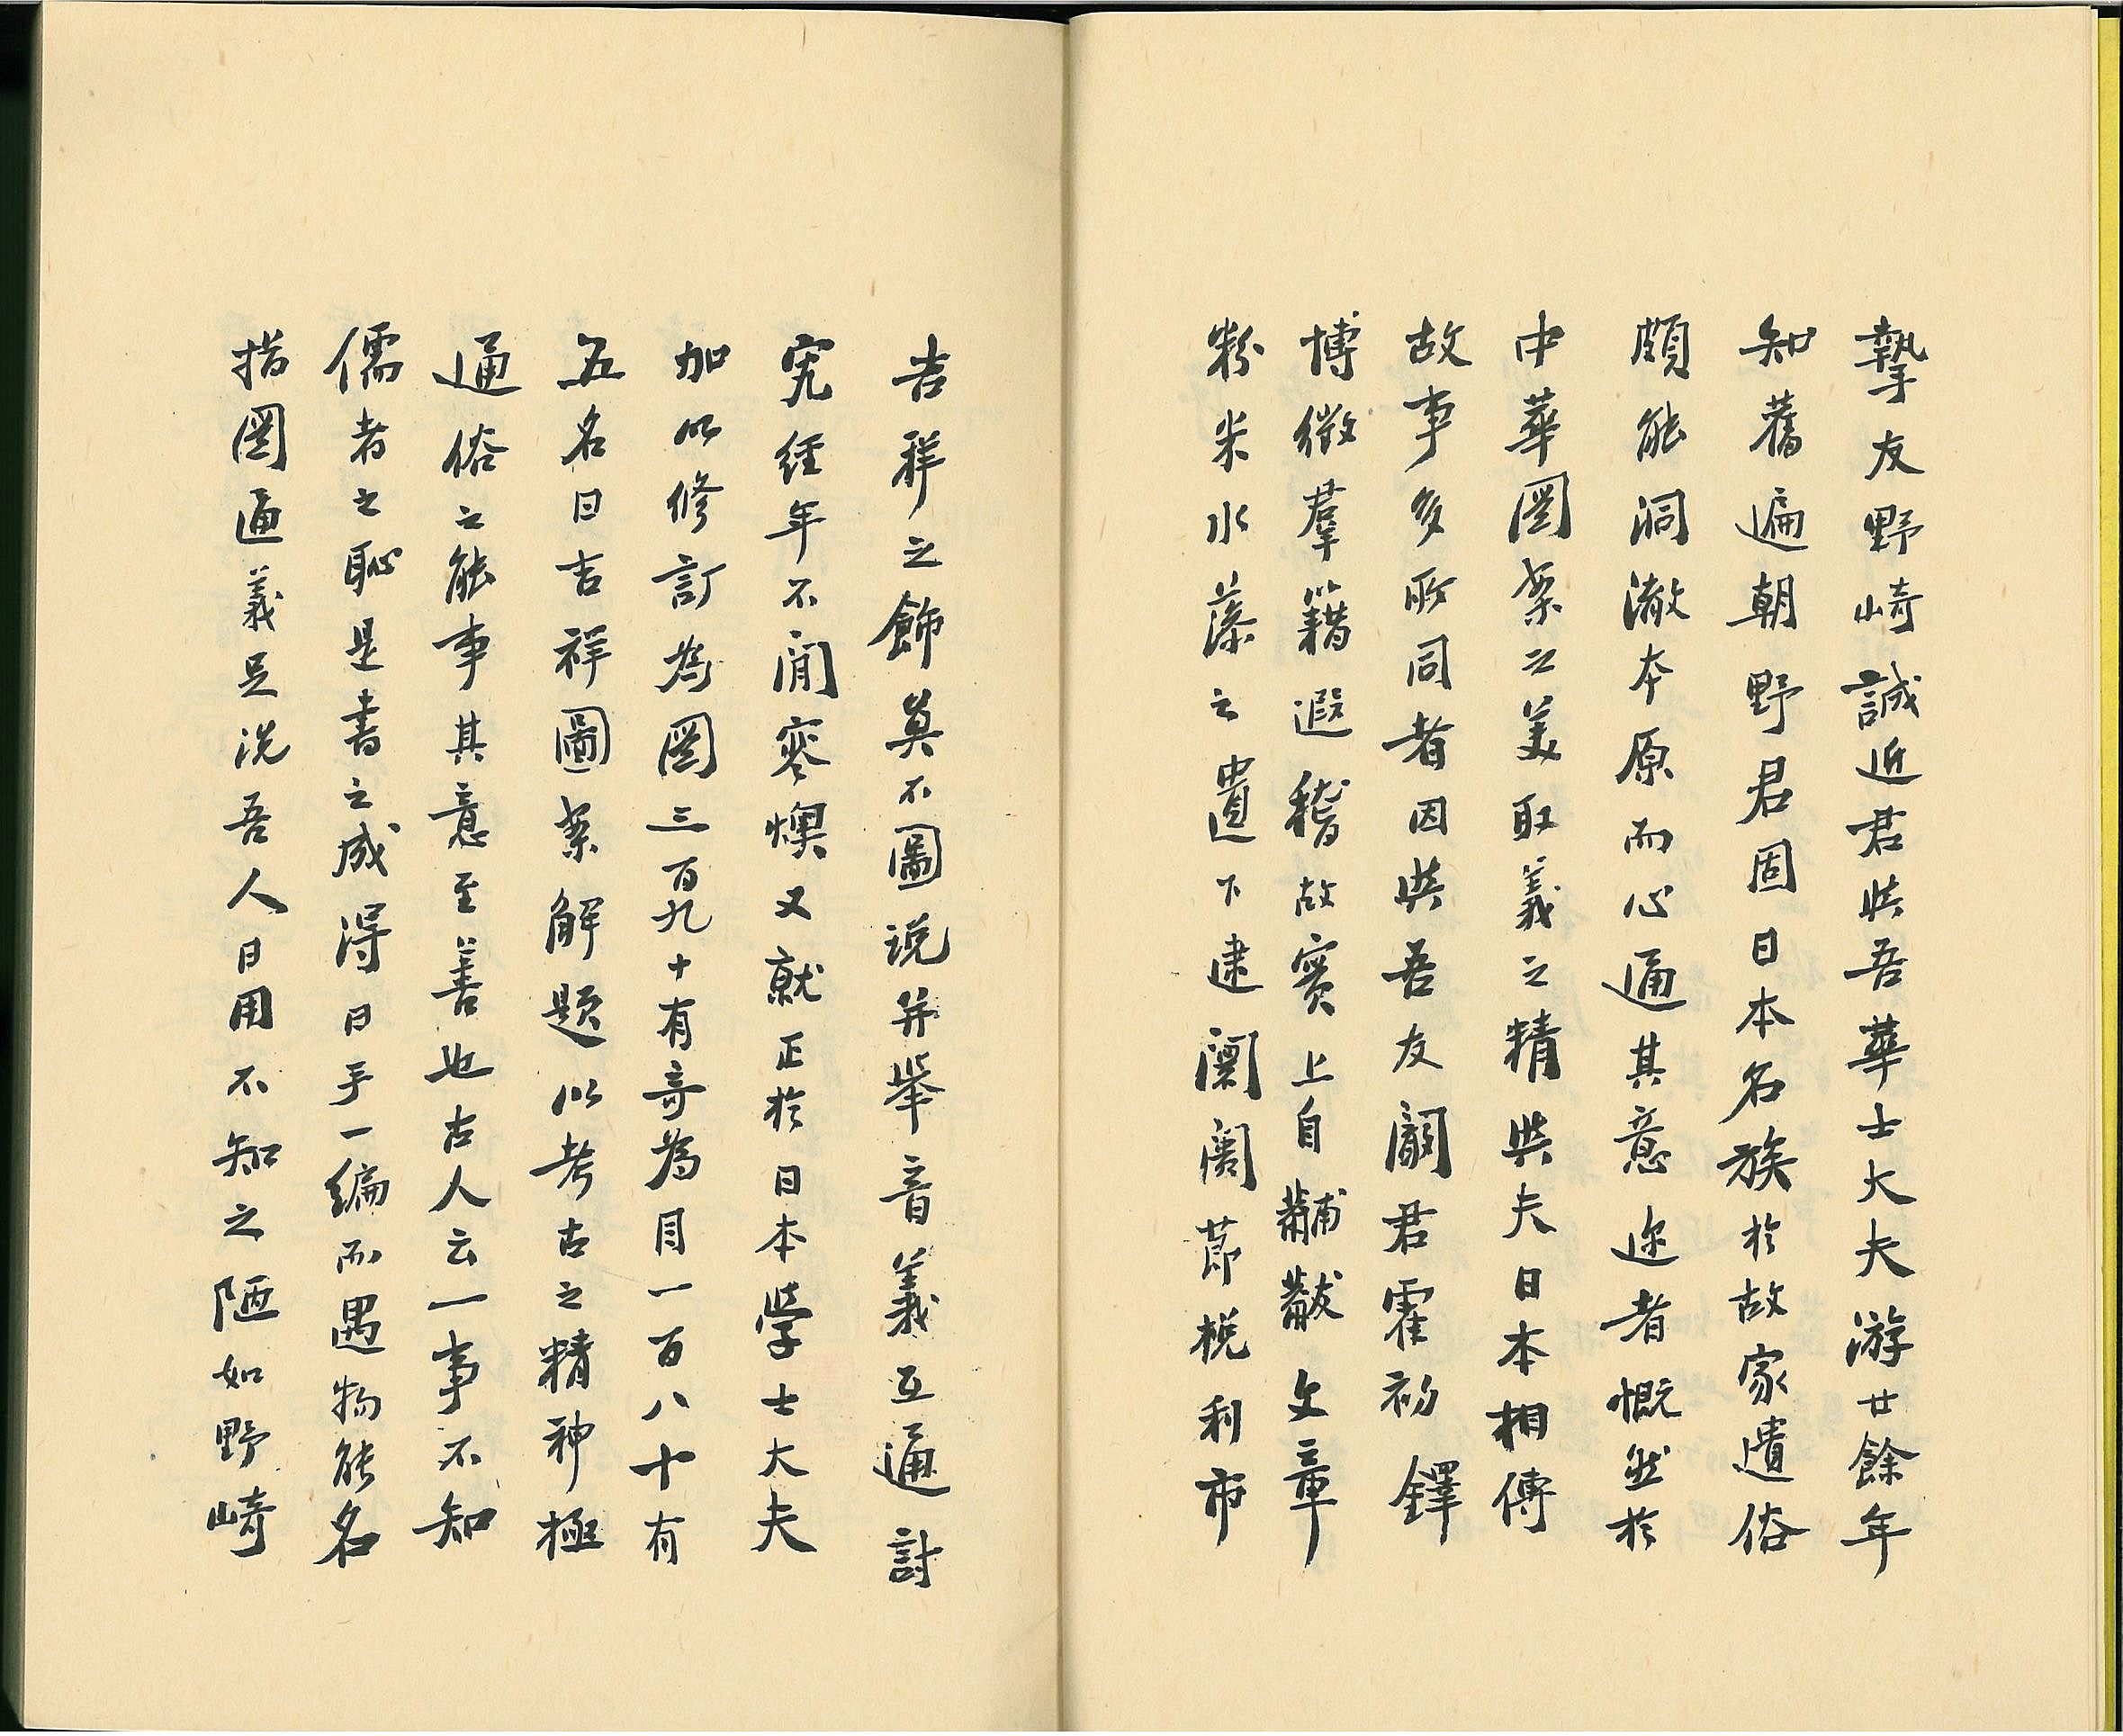 摯友野崎誠近君與吾華士大夫游廿餘年
知舊遍朝野君固日本名族於故家遺俗
頗能洞澈本原而心通其意邇者慨然於
中華圖案之美取義之精與夫日本相傳
故事多所同者因與吾友闞君霍初鐸
博徵羣籍遐稽故實上自黼黻文章
粉米水藻之遺下逮闤闠節棁利市
吉祥之飾莫不圖说并舉音義互通討
究經年不閒寒燠又就正於日本學士大夫
加以修訂為圖三百九十有奇為目一百八十有
五名曰吉祥圖案解題以考古之精神極
通俗之能事其意至善也古人云一事不知
儒者之恥是書之成得日手一編而遇物能名
指圖通義足洗吾人日用不知之陋如野崎